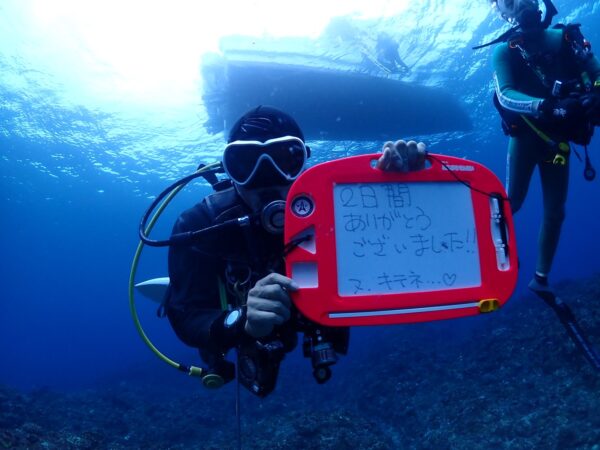 2日間
ありがとう
ございました!!
又、キテネ…♡